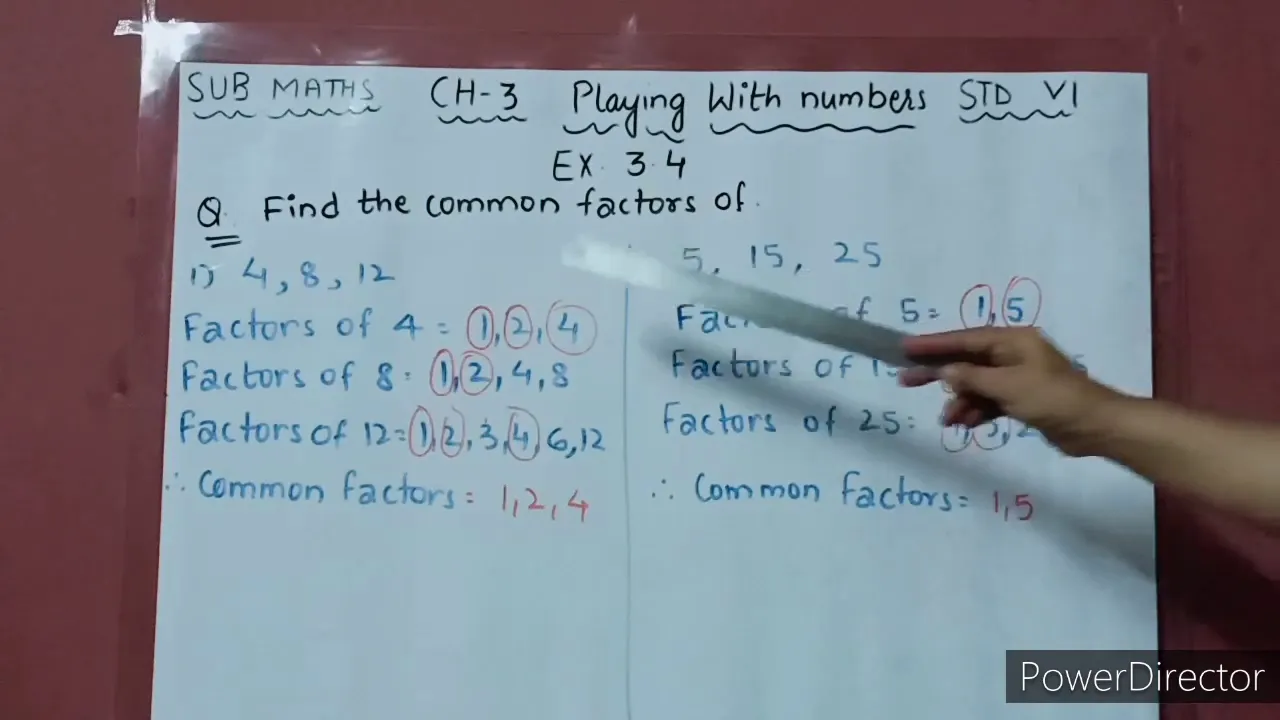 SUB MATHS CH-3 Playing With numbers STD VI
EX. 3.4
Q. Find the common factors of.
1) 4, 8, 12
Factors of 4 = 1, 2, 4
Factors of 8 = 1, 2, 4, 8
Factors of 12 = 1, 2, 3, 4, 6, 12
∴ Common factors = 1, 2, 4
5, 15, 25
of 5 = 1, 5
Factors of
Factors of 25 =
∴ Common factors = 1, 5
PowerDirector